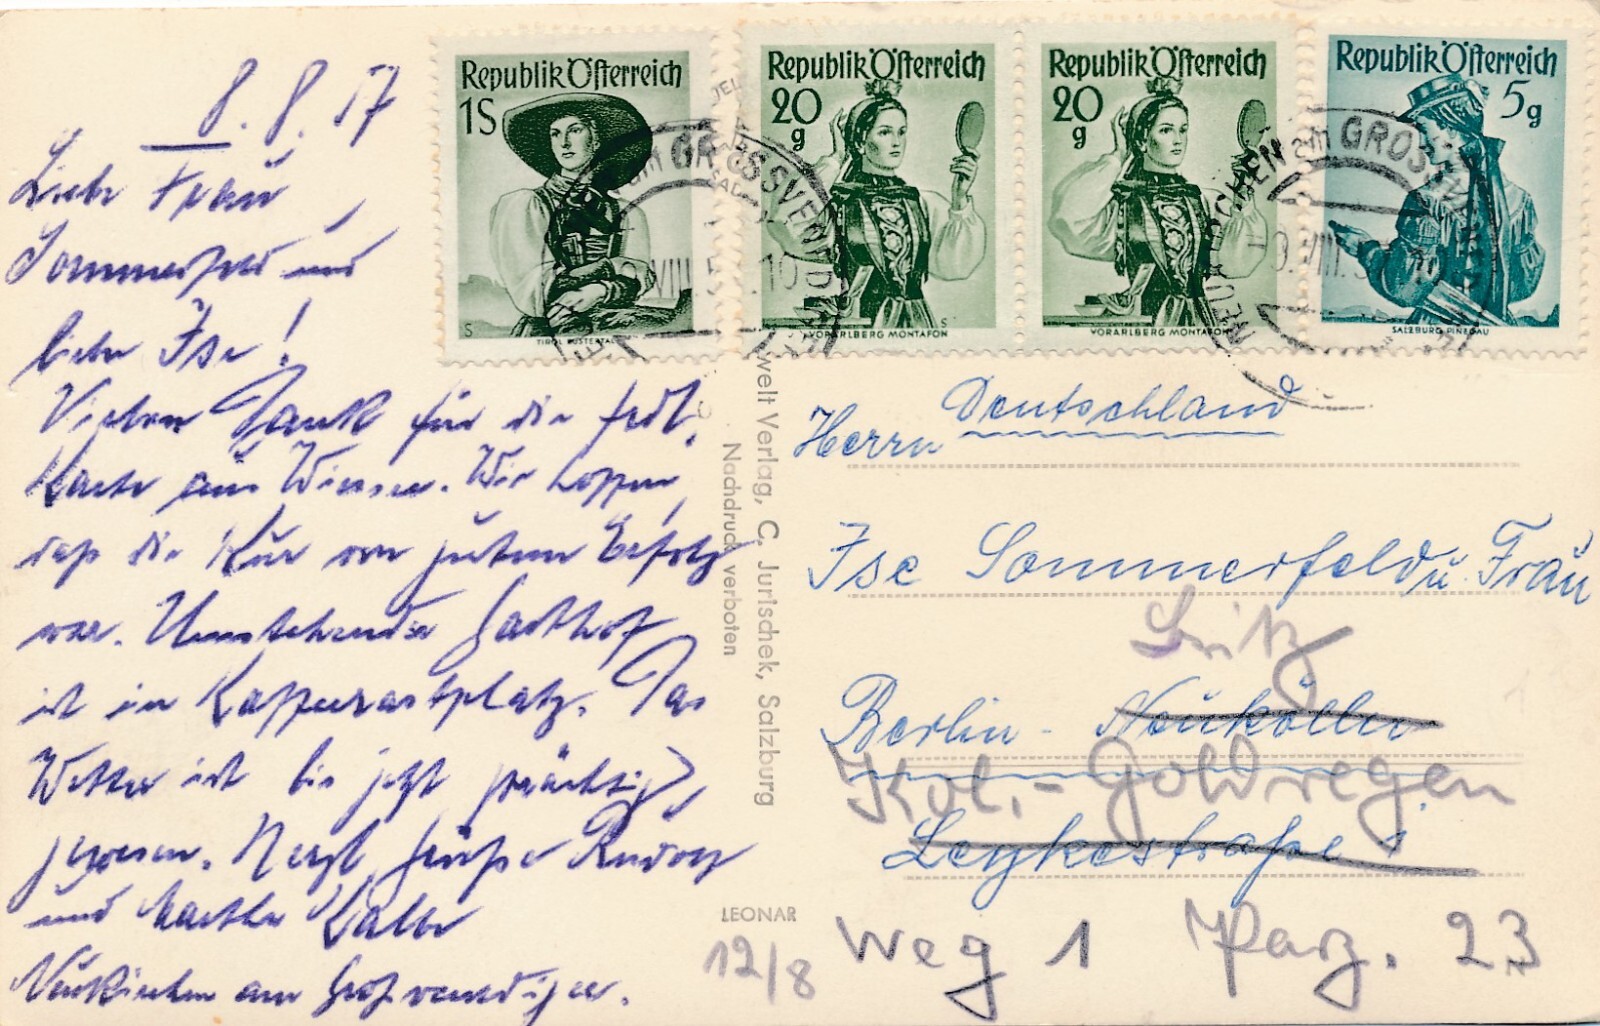 8. 8. 57
Liebe Frau
Sommerfeld und
lieber Ise!
Vielen Dank für die frdl.
Karte aus Wiessee. Wir hoffen,
daß die Kur von gutem Erfolg
war. Umstehender Gasthof
ist in
Wetter ist bis jetzt prächtig
gewesen. Herzl. Grüße Rudolf
und Martha
Neukirchen am Großvenediger.
Republik Österreich
1S
TIROL PUSTERTAL
Republik Österreich
20 g
VORARLBERG MONTAFON
Republik Österreich
20 g
VORARLBERG MONTAFON
Republik Österreich
5 g
SALZBURG PINZGAU
am GROSSVENEDIGER
NEUKIRCHEN am GROSSVENEDIGER
welt Verlag, C. Jurischek, Salzburg
Nachdruck verboten
LEONAR
12/8
Deutschland
Herrn
Ise Sommerfeld u. Frau
Britz
Berlin - Neukölln
Kol.- Goldregen
Leykestraße 1
Weg 1 Parz. 23